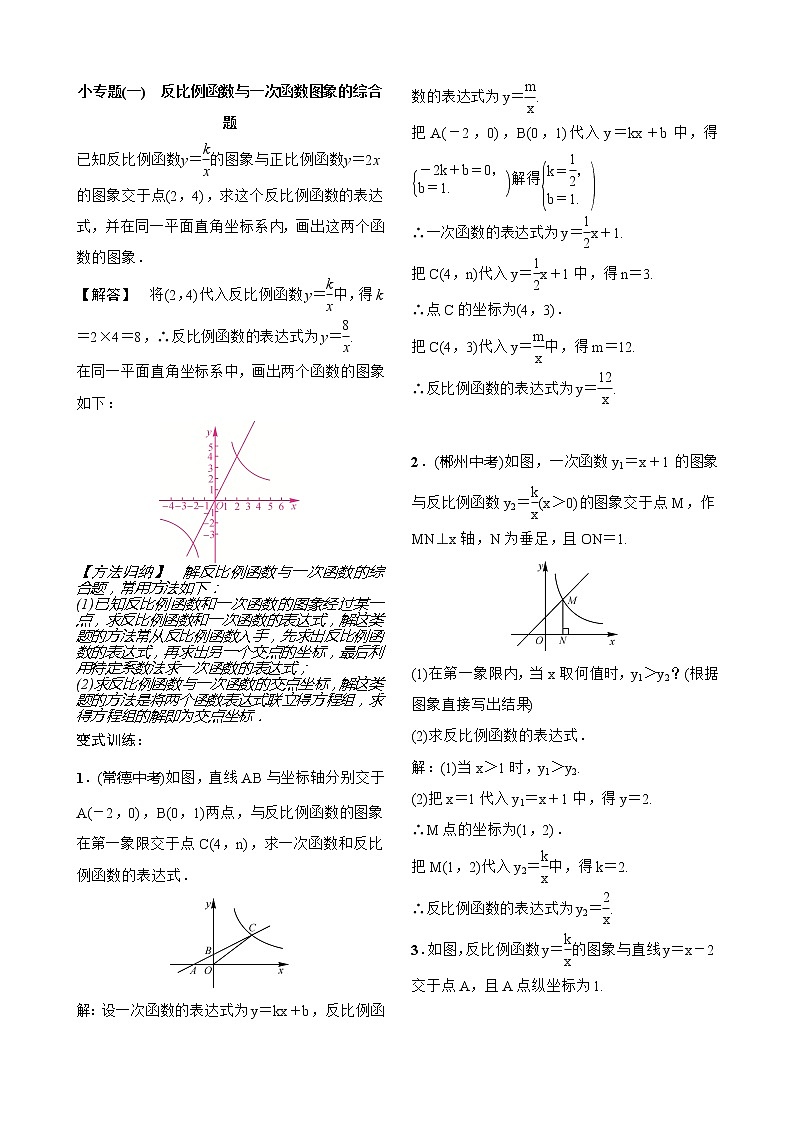 小专题(一)　反比例函数与一次函数图象的综合
题
已知反比例函数y=k/x的图象与正比例函数y=2x
的图象交于点(2，4)，求这个反比例函数的表达
式，并在同一平面直角坐标系内，画出这两个函
数的图象．
【解答】　将(2,4)代入反比例函数y=k/x中,得k
=2×4=8,∴反比例函数的表达式为y=8/x.
在同一平面直角坐标系中，画出两个函数的图象
如下：
y
5
4
3
2
1
-4-3-2-1 O 1 2 3 4 5 6 x
-1
-2
-3
【方法归纳】　解反比例函数与一次函数的综
合题，常用方法如下：
(1)已知反比例函数和一次函数的图象经过某一
点，求反比例函数和一次函数的表达式，解这类
题的方法常从反比例函数入手，先求出反比例函
数的表达式，再求出另一个交点的坐标，最后利
用待定系数法求一次函数的表达式；
(2)求反比例函数与一次函数的交点坐标，解这类
题的方法是将两个函数表达式联立得方程组，求
得方程组的解即为交点坐标．
变式训练：
1．(常德中考)如图，直线AB与坐标轴分别交于
A(－2，0)，B(0，1)两点，与反比例函数的图象
在第一象限交于点C(4，n)，求一次函数和反比
例函数的表达式．
y
C
B
A O x
解：设一次函数的表达式为y=kx+b，反比例函
数的表达式为y=m/x.
把A(－2，0)，B(0，1)代入y=kx+b中，得
{-2k+b=0，b=1.)解得{k=1/2，b=1.)
∴一次函数的表达式为y=1/2x+1.
把C(4，n)代入y=1/2x+1中，得n=3.
∴点C的坐标为(4，3)．
把C(4，3)代入y=m/x中，得m=12.
∴反比例函数的表达式为y=12/x.
2．(郴州中考)如图，一次函数y₁=x+1的图象
与反比例函数y₂=k/x(x＞0)的图象交于点M，作
MN⊥x轴，N为垂足，且ON=1.
y
M
O N x
(1)在第一象限内，当x取何值时，y₁＞y₂？(根据
图象直接写出结果)
(2)求反比例函数的表达式．
解：(1)当x＞1时，y₁＞y₂.
(2)把x=1代入y₁=x+1中，得y=2.
∴M点的坐标为(1，2)．
把M(1，2)代入y₂=k/x中，得k=2.
∴反比例函数的表达式为y₂=2/x.
3.如图,反比例函数y=k/x的图象与直线y=x－2
交于点A，且A点纵坐标为1.